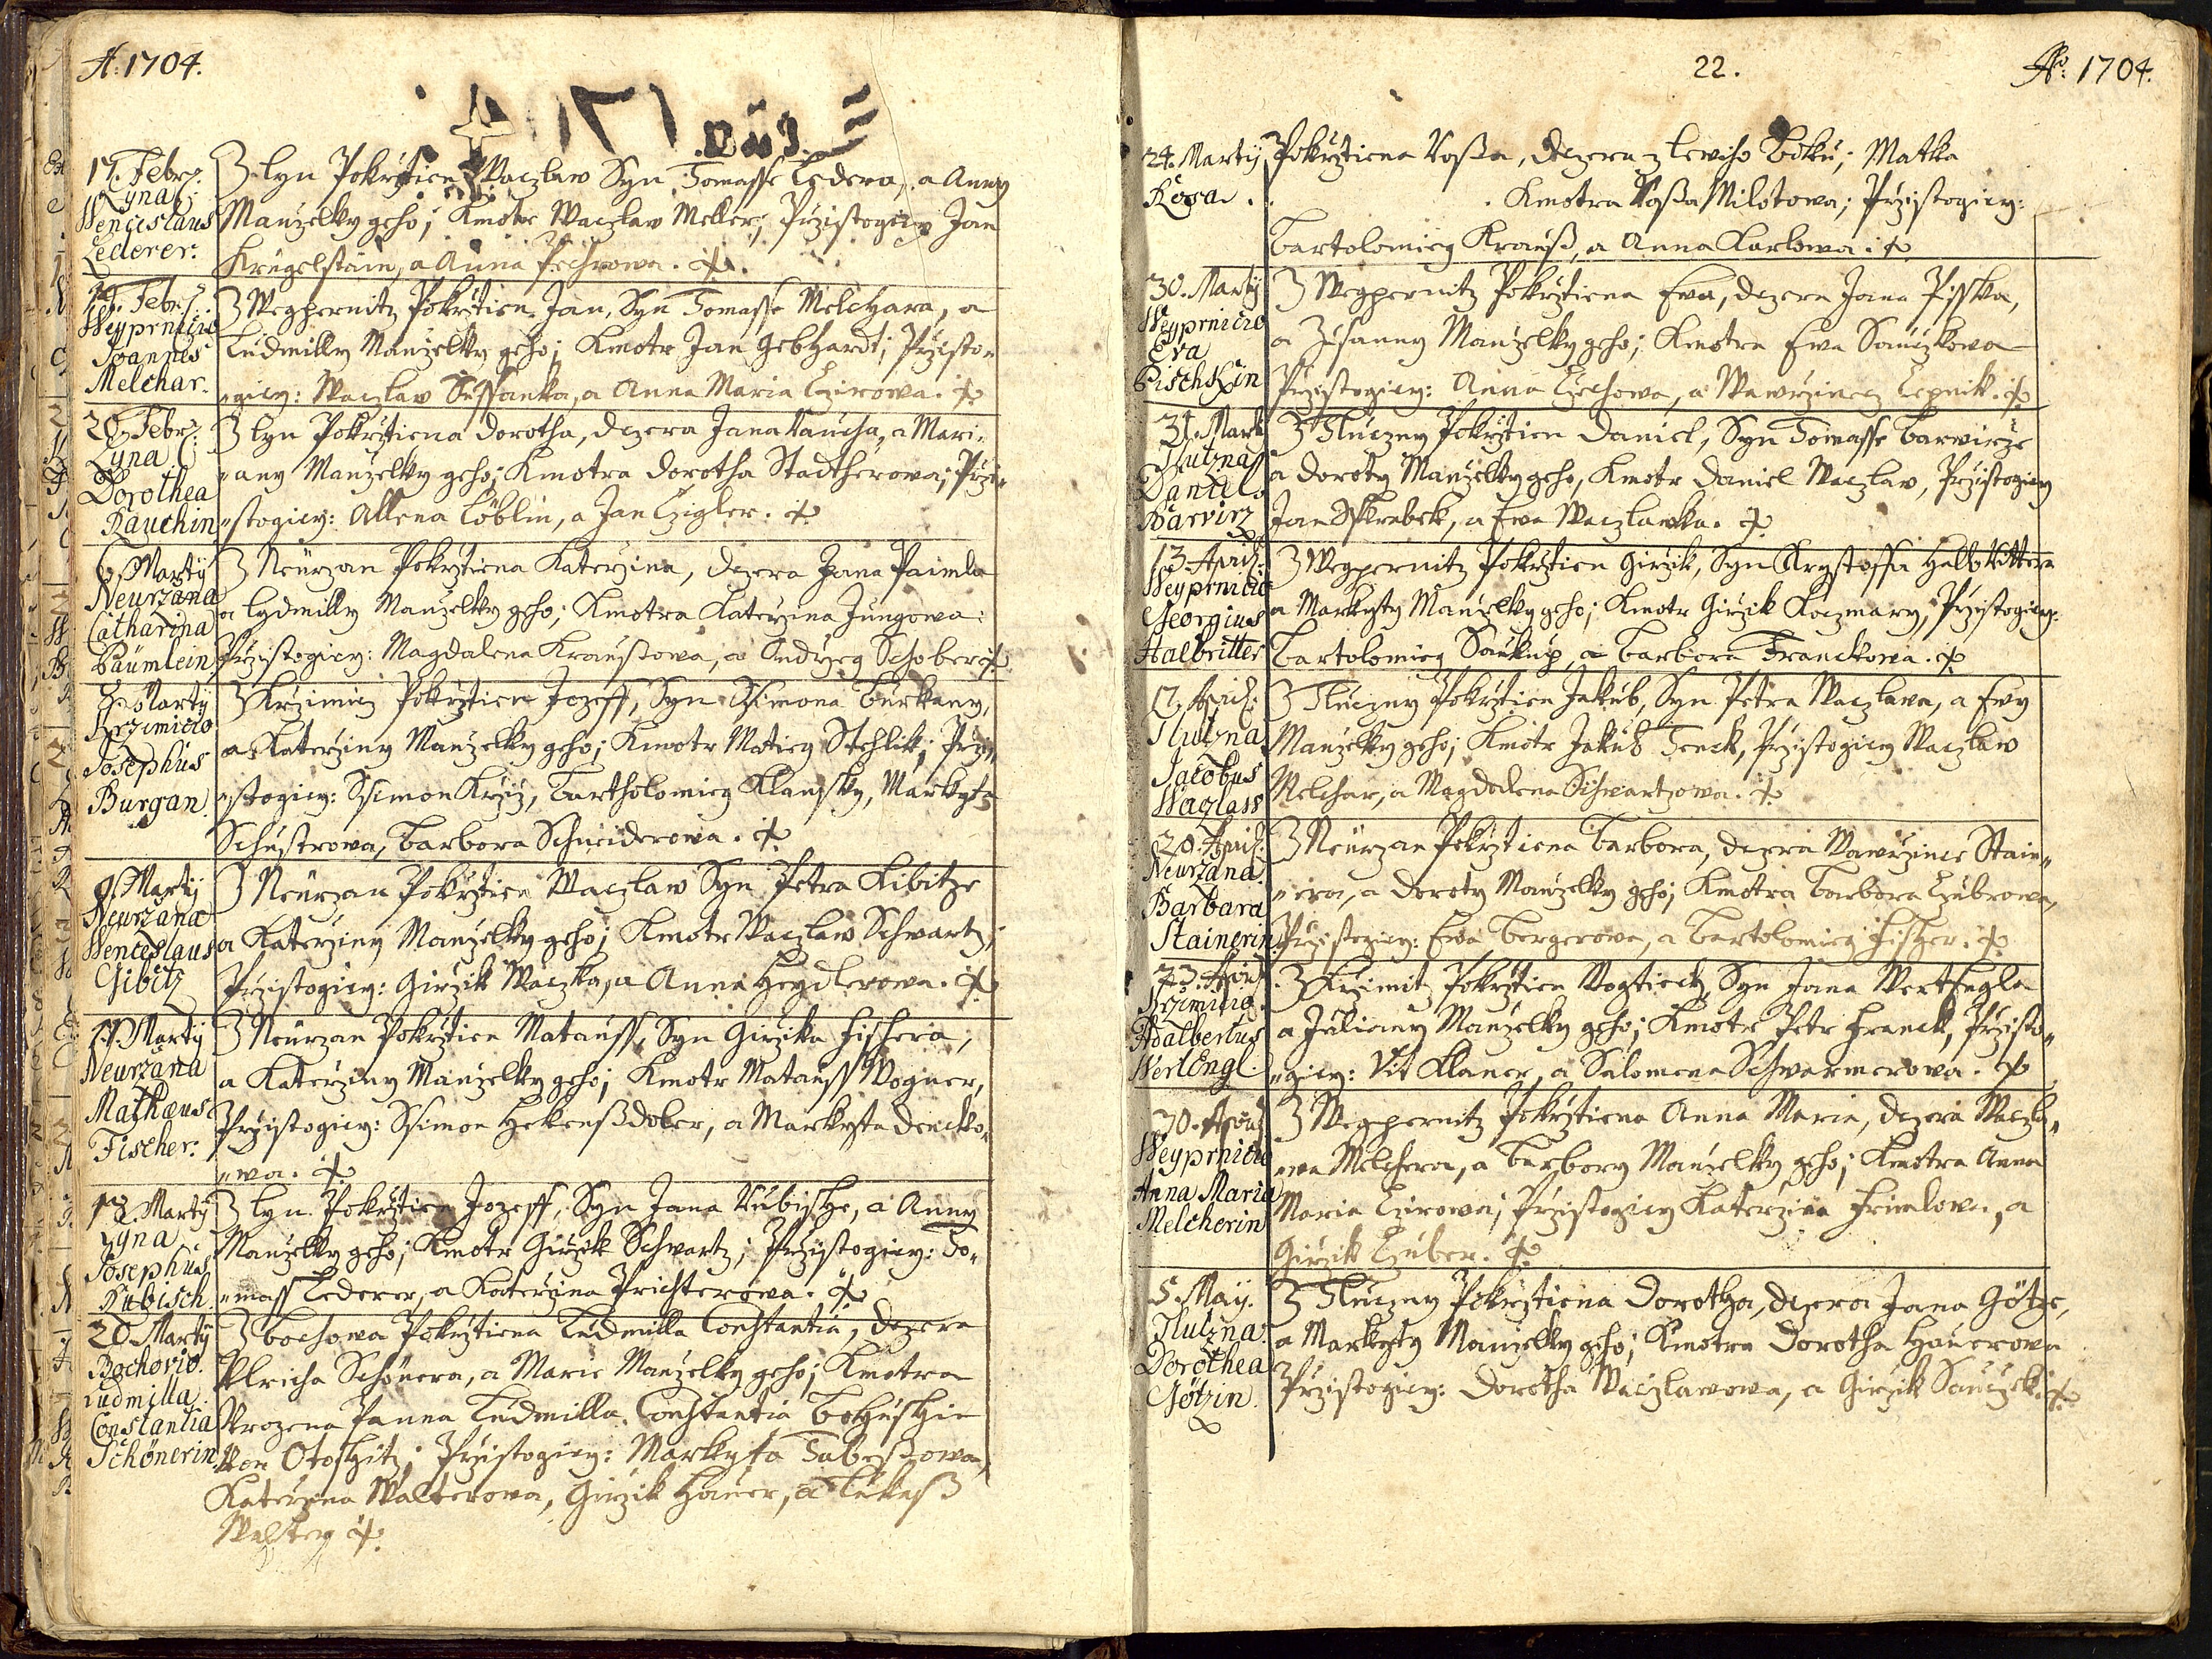 A: 1704.
17. Febr:
Lyna
Wenceslaus
Lederer.
Z Lyn Pokrztien Waczlaw Syn Tomasse Ledera, a Anny
Manzelky geho; Kmotr Waczlaw Meller; Przistogicy Jan
Krügelstain, a Anna
19. Febr:
Weyprnicio
Joannes
Melchar.
Z Wegpernitz Pokrztien Jan, Syn Tomasse Melchara, a
Ludmilly Manzelky geho; Kmotr Jan Gebhardt; Przisto„
„gicy: Waczlaw Sussanka, a Anna Maria Czirowa.
20. Febr:
Lyna
Dorothea
Rauchin
Z Lyn Pokrztiena Dorotha, dczera Jana Raucha, a Mari„
„any Manzelky geho; Kmotra Dorotha Stadtherowa; Przi„
„stogicy: Allena Löblin, a Jan Czigler.
6. Martÿ
Neurzana
Catharina
Päumlein
Z Neurzan Pokrztiena Katerzina, dczera Jana Paimla
a Lydmilly Manzelky geho; Kmotra Katerzina Jungowa:
Przistogicy: Magdalena Kraußowa, a Andrzeg Schober
8. Martÿ
Krzimicio
Josephus
Burgan.
Z Krzimicz Pokrztien Jozeff, Syn Ssimona Burkany,
a Katerziny Manzelky geho; Kmotr Matieg Stehlik; Przi„
„stogicy: Ssimon Krziz, Bartholomieg Klansky, Markyta
Schustrowa, Barbora Schneiderowa.
9. Martÿ
Neurzana
Wenceslaus
Gibitz
Z Neurzan Pokrztien Waczlaw Syn Petra Kibitze
a Katerziny Manzelky geho; Kmotr Waczlaw Schwartz;
Przistogicy: Girzik Waczka, a Anna Heydlerowa.
Martÿ
Neurzana
Mathæus
Fischer.
Z Neurzan Pokrztien Matauss, Syn Girzika Fischera,
a Katerziny Manzelky geho; Kmotr Matauss Wogner,
Przistogicy: Ssimon Hekenßdober, a Markyta Dencko„
„wa.
Martÿ
Lyna
Josephus
Rubisch.
Z Lyn Pokrztien Jozeff, Syn Jana Rubische, a Anny
Manzelky geho; Kmotr Girzik Schwartz; Przistogicy: To„
„mass Lederer, a Katerzina Prichterowa.
20 Martÿ
Bochovio.
Ludmilla
Constantia
Schönerin.
Z Bochowa Pokrztiena Ludmilla Constantia, dczera
Ulricha Schönera, a Marie Manzelky geho; Kmotra
Urozena Panna Ludmilla Constantia
von Otoschitz; Przistogicy: Markyta
Katerzina Walterowa, Girzik Hauer, a Lukaß
22.
Aō: 1704.
24. Martÿ
Rosa.
Pokrztiena Roßa, dczera z Lewiho Boku; Matka
. Kmotra Roßa Milotowa; Przistogicy:
Bartolomieg Krauß, a Anna Karlowa.
30. Martÿ
Weyprnicio
Eva
Pischkin
Z Wegpernitz Pokrztiena Ewa, dczera Jana Pisska,
a Zusanny Manzelky geho; Kmotra Ewa Sauczkowa
Przistogicy: Anna Czechowa, a Wawrzinecz Czepnik.
31. Marti
Tlutzna
Daniel
Barvirz
Z Tluczny Pokrztien Daniel, Syn Tomasse Barwirze
a Doroty Manzelky geho, Kmotr Daniel Waczlaw, Przistogicy
Jan Skrabek, a Ewa Waczlawka.
13. April:
Weyprnicio
Georgius
Halbritter
Z Wegpernitz Pokrztien Girzik, Syn Krystoffa Halbrittera
a Markyty Manzelky geho; Kmotr Girzik Koczmary, Przistogicy:
Bartolomieg Saukup, a Barbora Franckowa.
17. April:
Tlutzna
Jacobus
Waczlaw
Z Tluczny Pokrztien Jakub, Syn Petra Waczlawa, a Ewy
Manzelky geho; Kmotr Jakub Tenck, Przistogicy Waczlaw
Melchar, a Magdalena Schwartzowa.
20. April:
Neurzana
Barbara
Stainerin
Z Neurzan Pokrztiena Barbora, dczera Wawrzince Stain„
„era, a Doroty Manzelky geho; Kmotra Barbora Czubrowa,
Przistogicy: Ewa Bergerowa, a Bartolomieg Fischer.
23. April
Krzimicio.
Adalbertus
WertEngl.
Z Krzimitz Pokrztien Wogtiech, Syn Jana WertEngla
a Juliany Manzelky geho; Kmotr Petr Franck, Przisto„
„gicy: Vit Klaner, a Salomena Schwarmerowa.
30. April
Weyprnicio
Anna Maria
Melcherin
Z Wegpernitz Pokrztiena Anna Maria, dczera Waczla„
„wa Melchera, a Barbory Manzelky geho; Kmotra Anna
Maria Czirowa; Przistogicy Katerzina Frimlowa, a
Girzik Czuber.
5. Maÿ.
Tlutzna.
Dorothea
Götzin.
Z Tluczny Pokrztiena Dorotha, dczera Jana Götze,
a Markyty Manzelky geho; Kmotra Dorotha Hauerowa
Przistogicy: Dorotha Waczlawowa, a Girzik Sauczek.